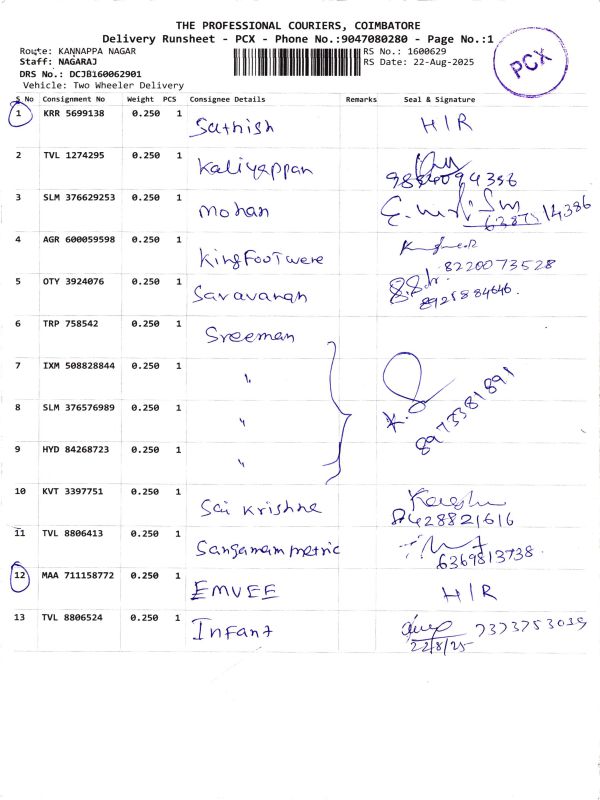 THE PROFESSIONAL COURIERS, COIMBATORE
Delivery Runsheet - PCX - Phone No.:9047080280 - Page No.:1
Route: KANNAPPA NAGAR RS No.: 1600629
Staff: NAGARAJ RS Date: 22-Aug-2025
DRS No.: DCJB160062901
Vehicle: Two Wheeler Delivery
PCX
S No Consignment No Weight PCS Consignee Details Remarks Seal & Signature
1 KRR 5699138 0.250 1 Sathish H/R
2 TVL 1274295 0.250 1 Kaliyappan 9884094356
3 SLM 376629253 0.250 1 Mohan
4 AGR 600059598 0.250 1 King Footwere 8220073528
5 OTY 3924076 0.250 1 Saravanan 8925884646.
6 TRP 758542 0.250 1 Sreeman
7 IXM 508828844 0.250 1 "
8 SLM 376576989 0.250 1 " 8973381891
9 HYD 84268723 0.250 1 "
10 KVT 3397751 0.250 1 Sai Krishna
11 TVL 8806413 0.250 1 Sangamam metric 6369813738
12 MAA 711158772 0.250 1 EMVEE H/R
13 TVL 8806524 0.250 1 Infant 7373753039
22/8/25